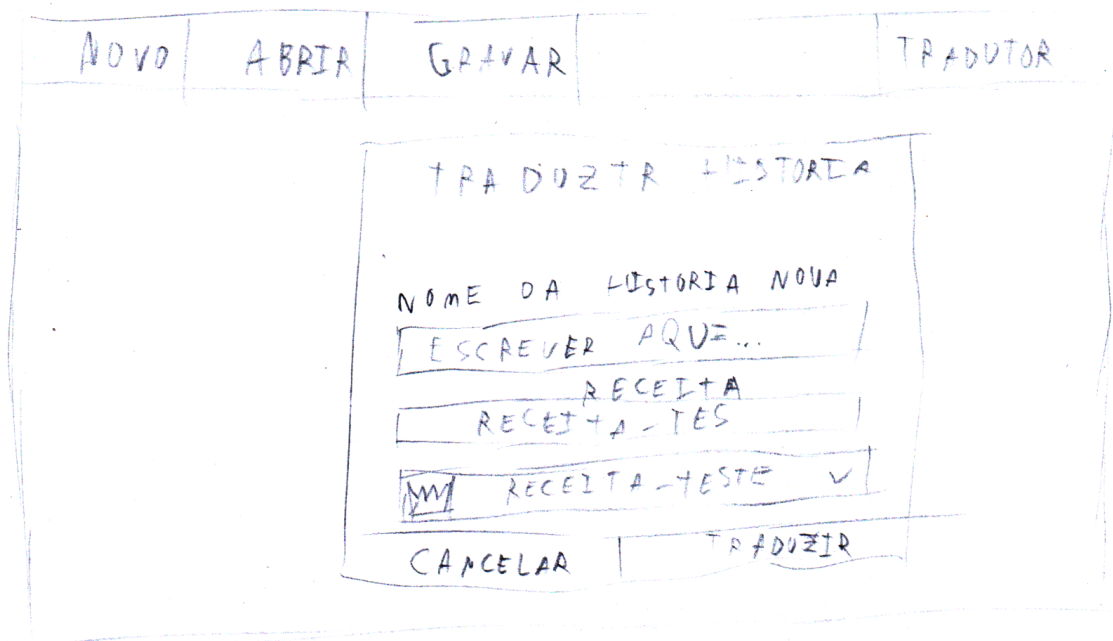 NOVO ABRIR GRAVAR TRADUTOR
TRADUZIR HISTORIA
NOME DA HISTORIA NOVA
ESCREVER AQUI...
RECEITA
RECEITA-TES
RECEITA-TESTE
CANCELAR TRADUZIR